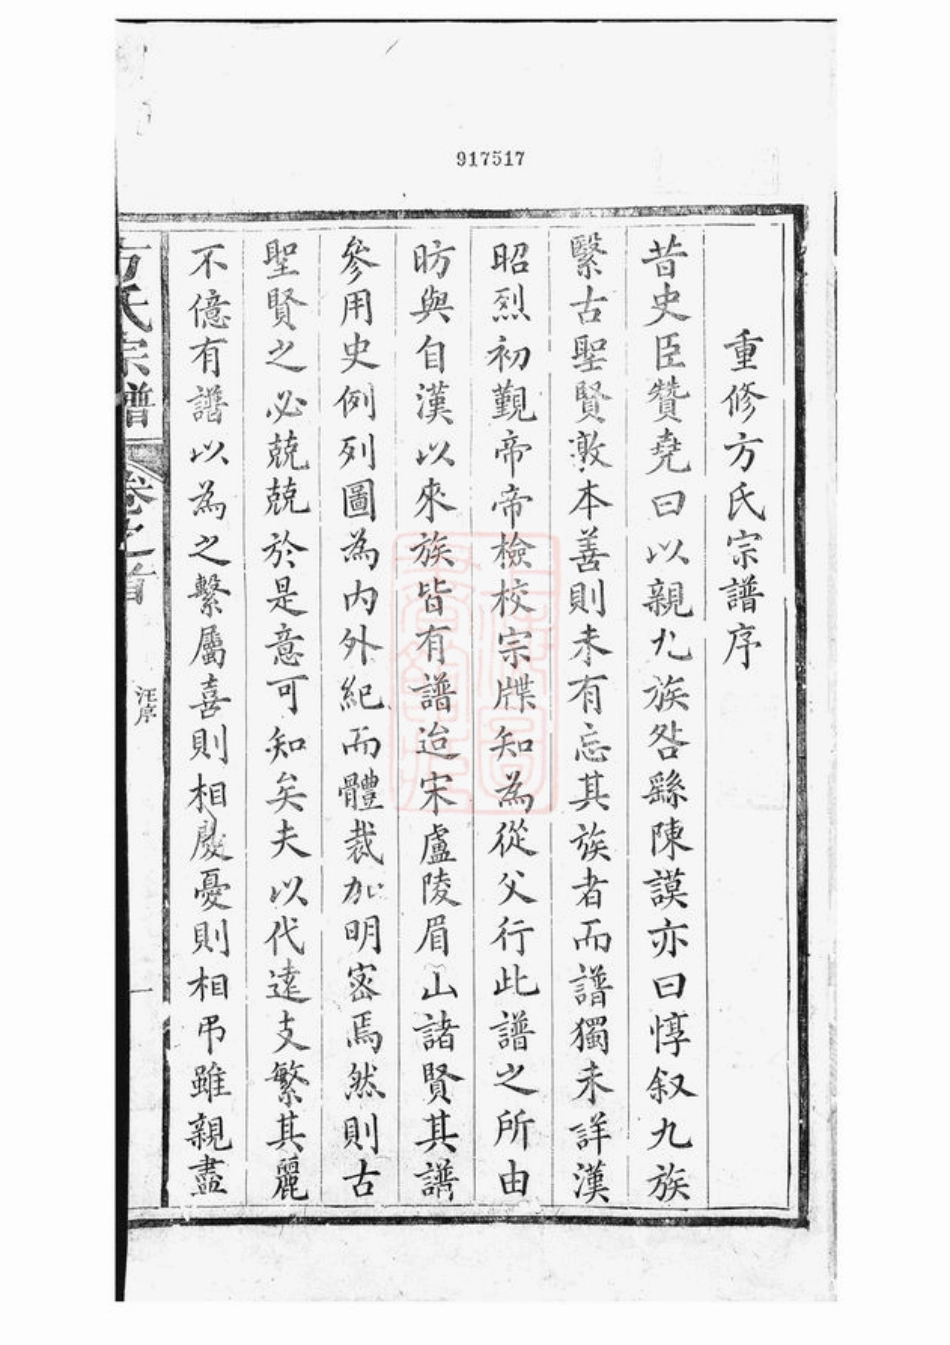 917517
重修方氏宗譜序
昔史臣贊堯曰以親九族咎繇陳謨亦曰惇叙九族
繄古聖賢敦本善則未有忘其族者而譜獨未詳漢
昭烈初覲帝帝檢校宗牒知為從父行此譜之所由
昉與自漢以來族皆有譜迨宋盧陵眉山諸賢其譜
參用史例列圖為內外紀而體裁加明密焉然則古
聖賢之必兢兢於是意可知矣夫以代遠支繁其麗
不億有譜以為之繫屬喜則相慶憂則相弔雖親盡
方氏宗譜
卷之首
汪序
一